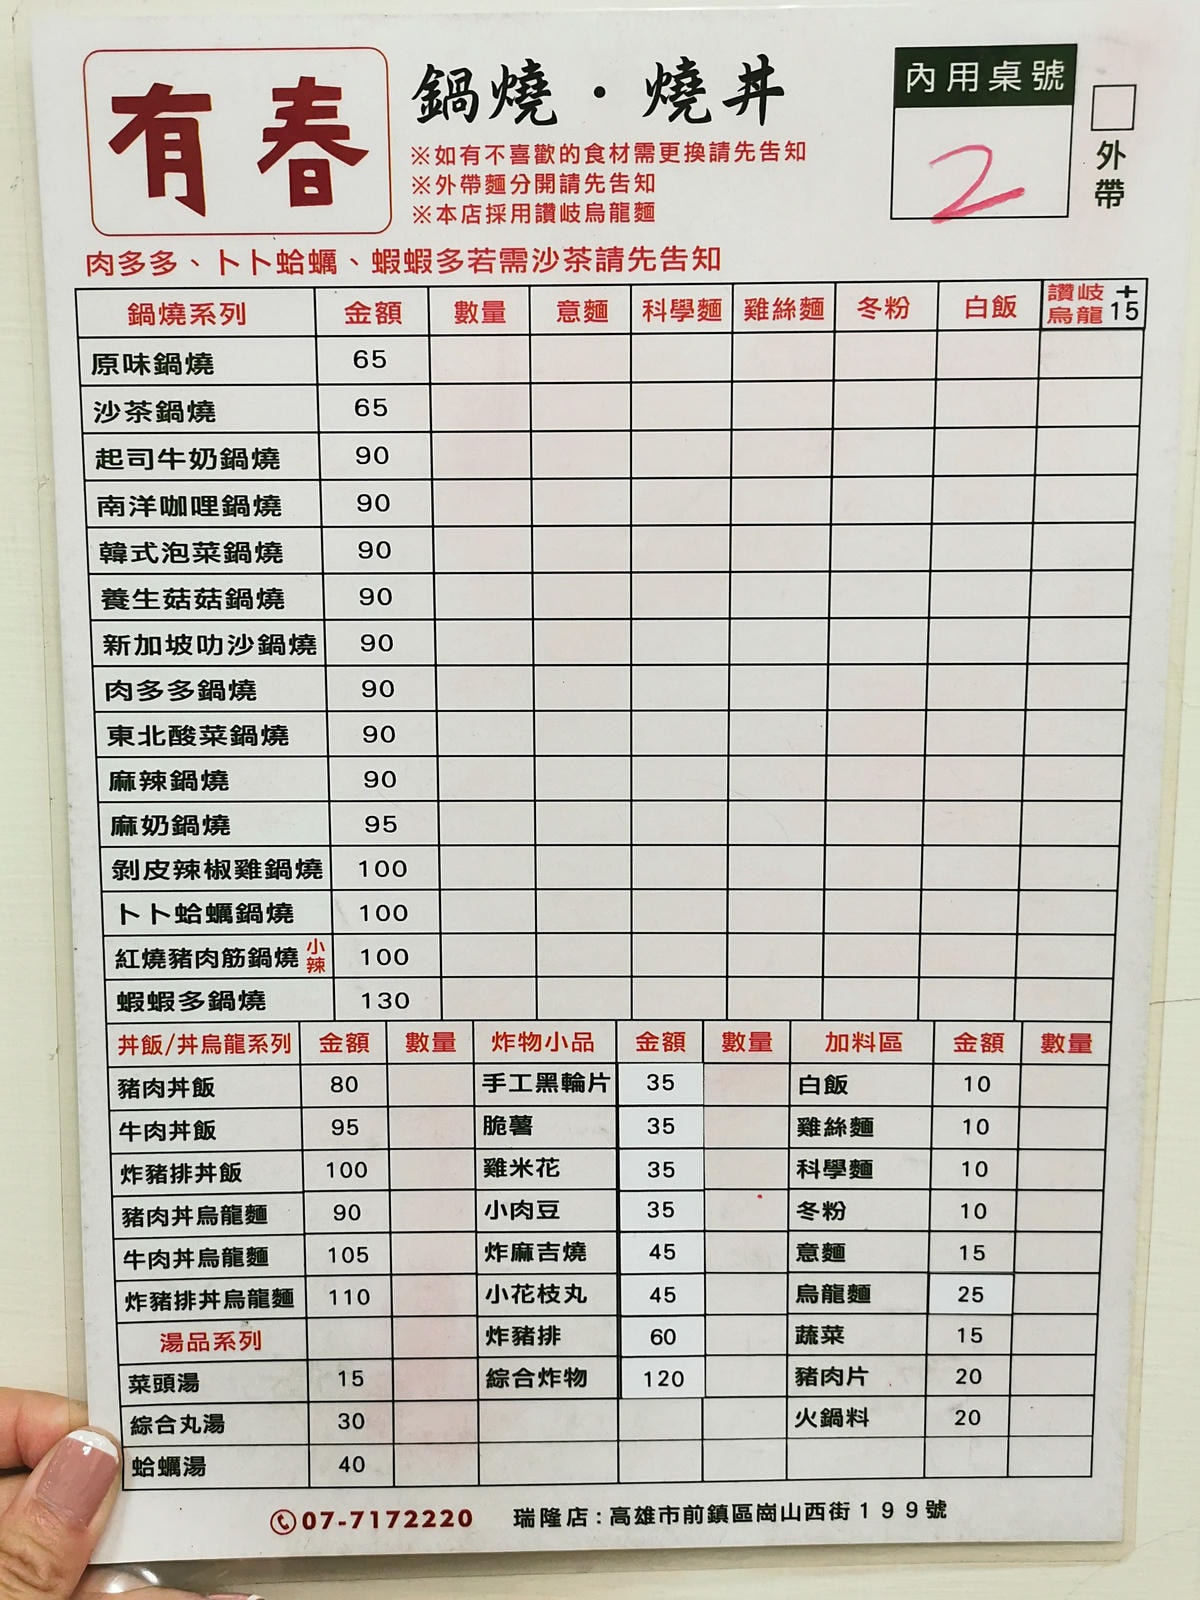 有春
鍋燒・燒丼
※如有不喜歡的食材需更換請先告知
※外帶麵分開請先告知
※本店採用讚岐烏龍麵
內用桌號
2
外帶
肉多多、卜卜蛤蠣、蝦蝦多若需沙茶請先告知
鍋燒系列 金額 數量 意麵 科學麵 雞絲麵 冬粉 白飯 讚岐烏龍 +15
原味鍋燒 65
沙茶鍋燒 65
起司牛奶鍋燒 90
南洋咖哩鍋燒 90
韓式泡菜鍋燒 90
養生菇菇鍋燒 90
新加坡叻沙鍋燒 90
肉多多鍋燒 90
東北酸菜鍋燒 90
麻辣鍋燒 90
麻奶鍋燒 95
剝皮辣椒雞鍋燒 100
卜卜蛤蠣鍋燒 100
紅燒豬肉筋鍋燒 小辣 100
蝦蝦多鍋燒 130
丼飯/丼烏龍系列 金額 數量 炸物小品 金額 數量 加料區 金額 數量
豬肉丼飯 80 手工黑輪片 35 白飯 10
牛肉丼飯 95 脆薯 35 雞絲麵 10
炸豬排丼飯 100 雞米花 35 科學麵 10
豬肉丼烏龍麵 90 小肉豆 35 冬粉 10
牛肉丼烏龍麵 105 炸麻吉燒 45 意麵 15
炸豬排丼烏龍麵 110 小花枝丸 45 烏龍麵 25
湯品系列 炸豬排 60 蔬菜 15
菜頭湯 15 綜合炸物 120 豬肉片 20
綜合丸湯 30 火鍋料 20
蛤蠣湯 40
07-7172220 瑞隆店：高雄市前鎮區崗山西街199號